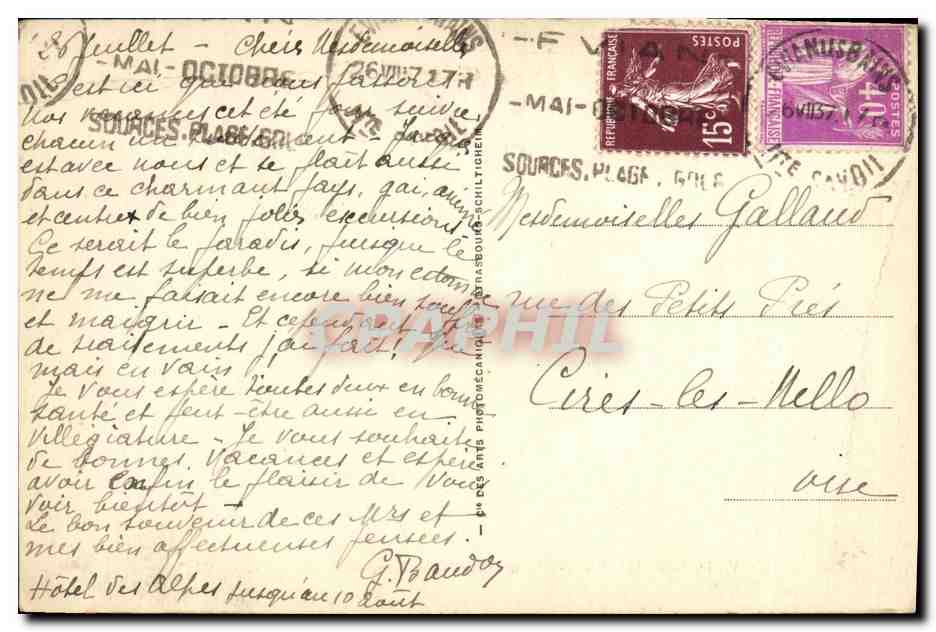 26 Juillet - Chères Mesdemoiselles
c'est ici que nous passons
nos vacances cet été pour suivre
chacun un traitement -
est avec nous et se plaît aussi
dans ce charmant pays, gai, animé
et centre de bien jolies excursions
Ce serait le paradis, puisque le
temps est superbe, si mon estomac
ne me faisait encore bien souffrir
et maigrir - Et cependant que
de traitements j'ai fait!
mais en vain!
Je vous espère toutes deux en bonne
santé et peut-être aussi en
villégiature - Je vous souhaite
de bonnes vacances et espère
avoir enfin le plaisir de vous
voir bientôt -
Le bon souvenir de ces Mrs et
mes bien affectueuses pensées.
G. Baudon
Hôtel des Alpes jusqu'au 10 août
- Cie DES ARTS PHOTOMÉCANIQUES STRASBOURG-SCHILTIGHEIM
-MAI-OCTOBRE
SOURCES.PLAGE.GOLF
26 VII 37 17H
HTE SAVOIE
-EVIAN
-MAI-OCTOBRE
SOURCES.PLAGE.GOLF
REPUBLIQUE FRANÇAISE
POSTES
15c
POSTES
40c
EVIAN LES BAINS
HTE SAVOIE
Mesdemoiselles Galland
rue des Petits Prés
Cires-les-Mello
Oise
CPAPHIL